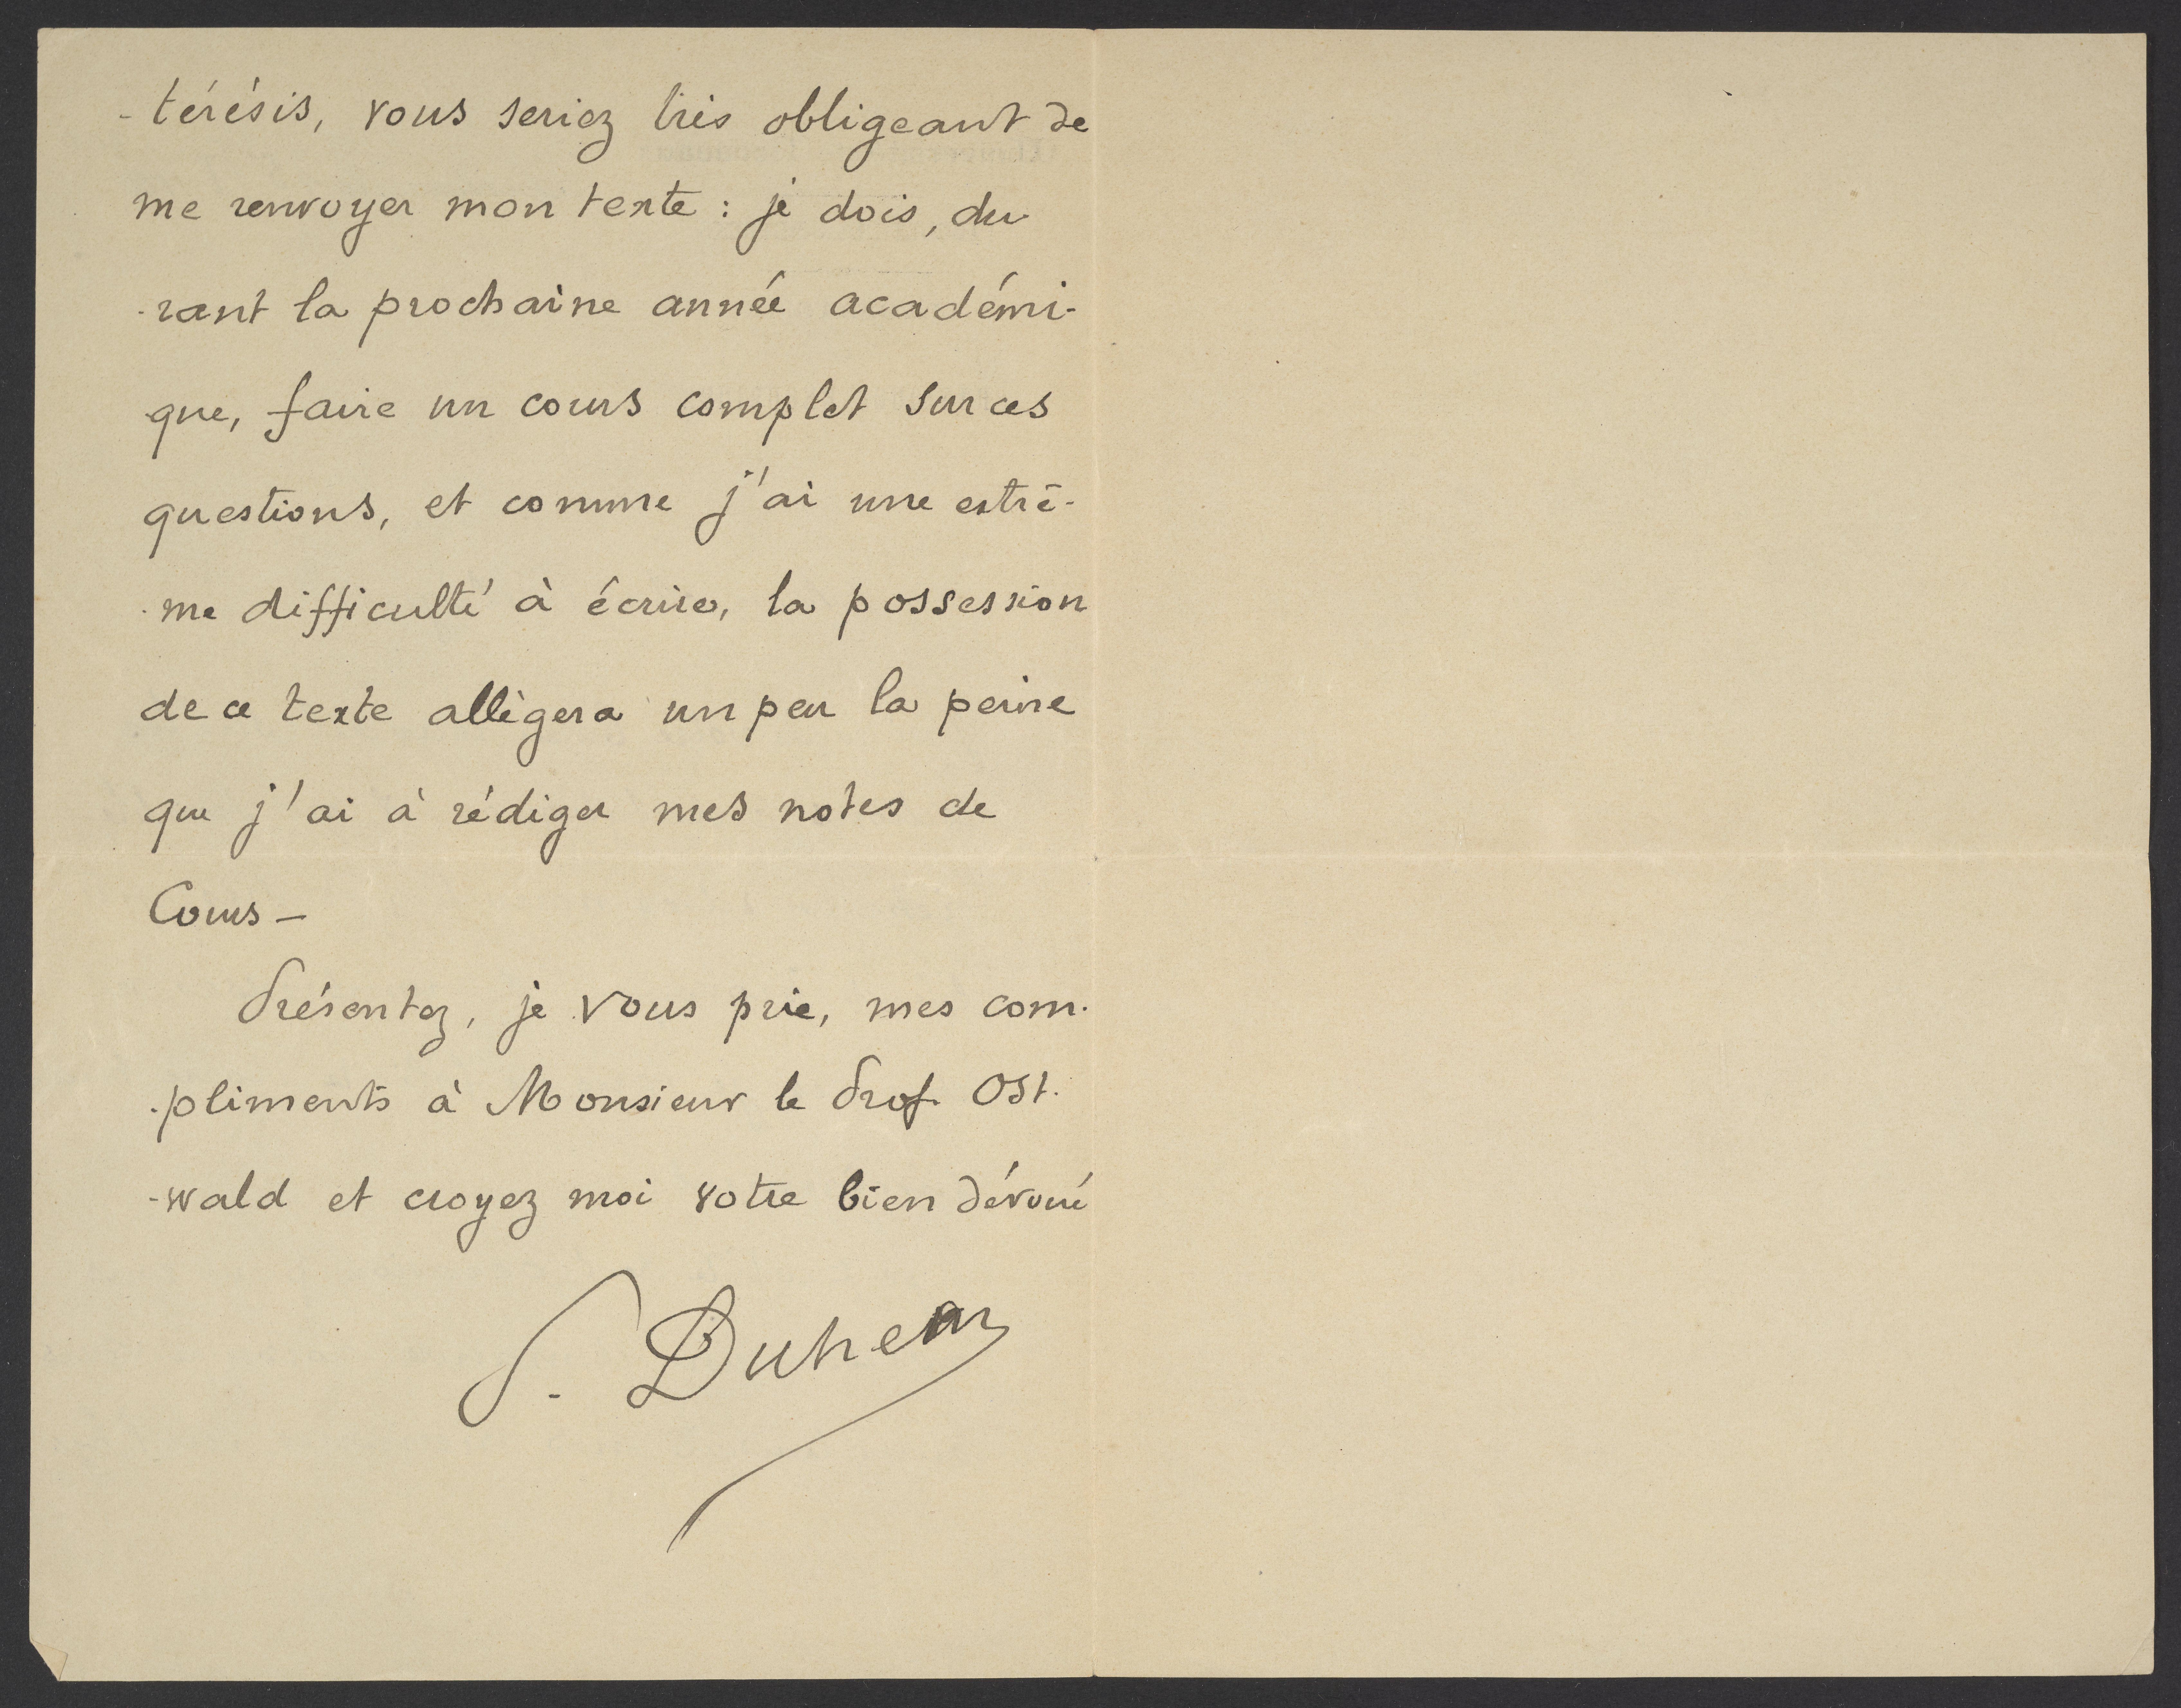 -térésis, vous seriez très obligeant de
me renvoyer mon texte : je dois, du
-rant la prochaine année académi-
que, faire un cours complet sur ces
questions, et comme j'ai une extrê-
-me difficulté à écrire, la possession
de ce texte allègera un peu la peine
que j'ai à rédiger mes notes de
Cours -
Présentez, je vous prie, mes com-
-pliments à Monsieur le Prof. Ost-
-wald et croyez moi votre bien dévoué
P. Duhem